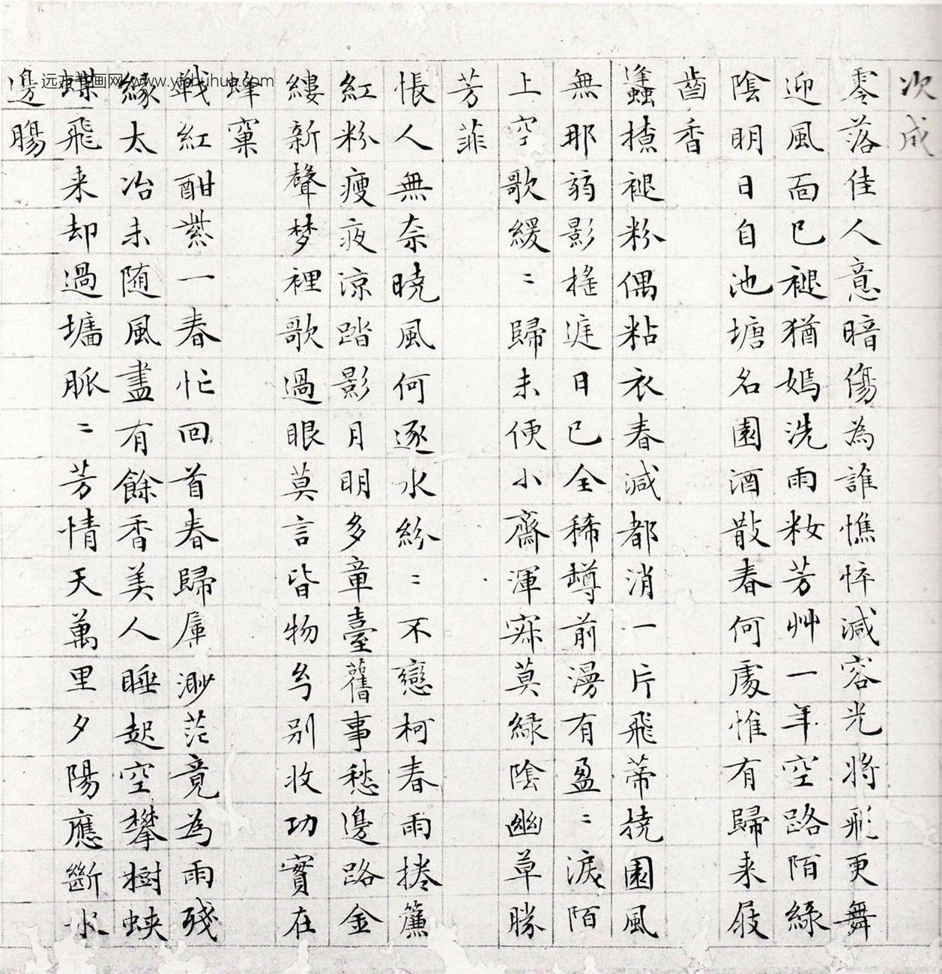 次成
零落佳人意暗傷為誰憔悴減容光將飛更舞
迎風面已褪猶嫣洗雨妝芳艸一年空路陌綠
陰明日自池塘名園酒散春何處惟有歸来屐
齒香
蠭撩褪粉偶粘衣春減都消一片飛蒂撓園風
無那弱影搖庭日已全稀罇前漫有盈〻淚陌
上空歌緩〻歸未便小齋渾寂莫綠陰幽草勝
芳菲
悵人無奈曉風何逐水紛〻不戀柯春雨捲簾
紅粉瘦夜涼踏影月明多章臺舊事愁邊路金
縷新聲梦裡歌過眼莫言皆物兮别收功實在
蜂窠
戰紅酣紫一春忙回首春歸屬渺茫竟為雨殘
緣太冶未随風盡有餘香美人睡起空攀樹蛺
蝶飛来却過墻脈〻芳情天萬里夕陽應斷水
邊腸
www.yuebuhua.com